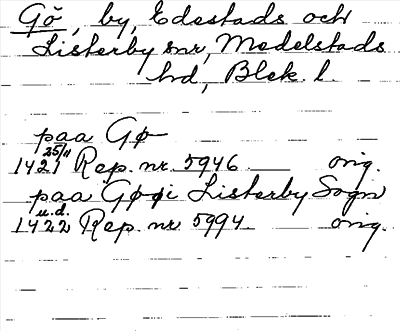 Gö, by, Edestads och
Listerby snr, Medelstads
hd, Blek. l.
paa Gø
25/11
1421 Rep. nr. 5946 orig.
paa Gøø i Listerby Sogn
u.d.
1422 Rep. nr 5994 orig.